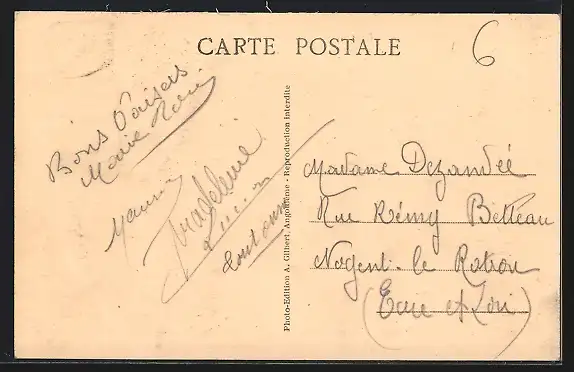 CARTE POSTALE
6
Bons Baisers
Marie
Madeleine
Lucien
Photo-Edition A. Gilbert, Angoulême - Reproduction interdite
Madame Dezandée
Rue Rémy Belleau
Nogent-le Rotrou
(Eure et Loir)